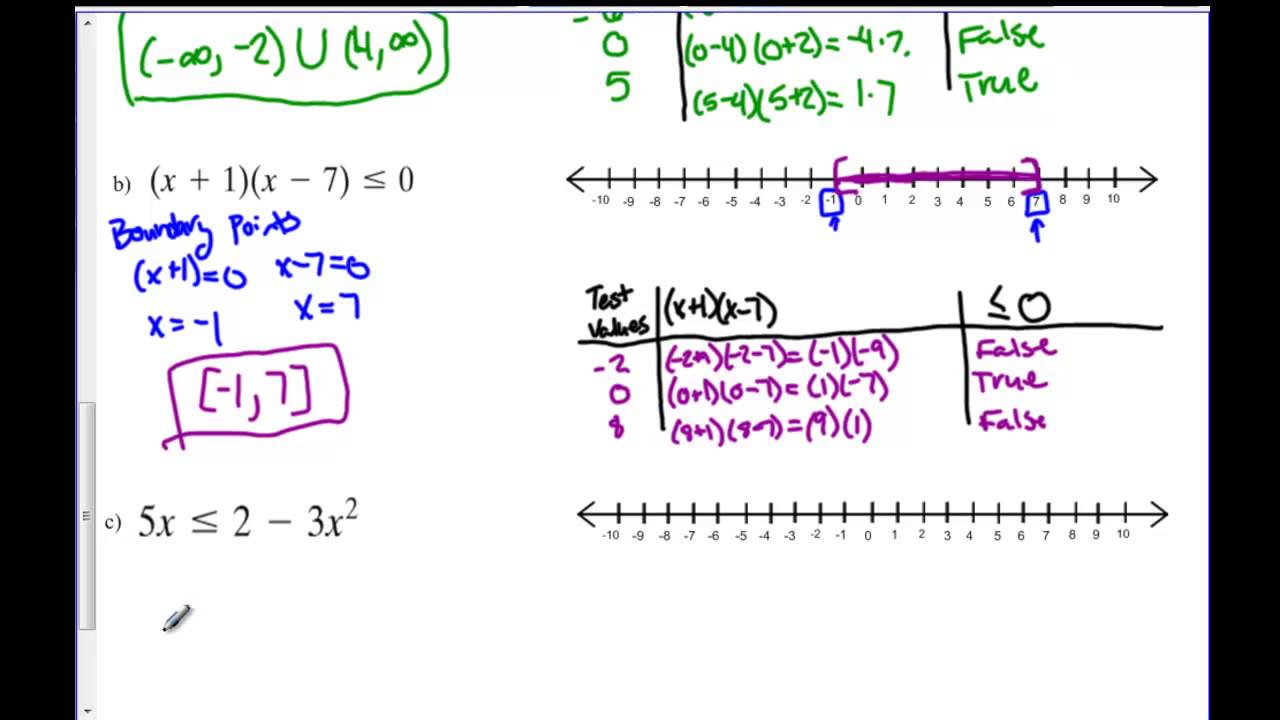 (-∞, -2) ∪ (4, ∞)
0 (0-4)(0+2) = -4·7. False
5 (5-4)(5+2) = 1·7 True
b) (x + 1)(x − 7) ≤ 0
-10 -9 -8 -7 -6 -5 -4 -3 -2 -1 0 1 2 3 4 5 6 7 8 9 10
Boundary Points
(x+1)=0 x-7=0
x=-1 x=7
[-1, 7]
Test Values (x+1)(x-7) ≤ 0
-2 (-2+1)(-2-7)=(-1)(-9) False
0 (0+1)(0-7)=(1)(-7) True
8 (8+1)(8-7)=(9)(1) False
c) 5x ≤ 2 − 3x²
-10 -9 -8 -7 -6 -5 -4 -3 -2 -1 0 1 2 3 4 5 6 7 8 9 10